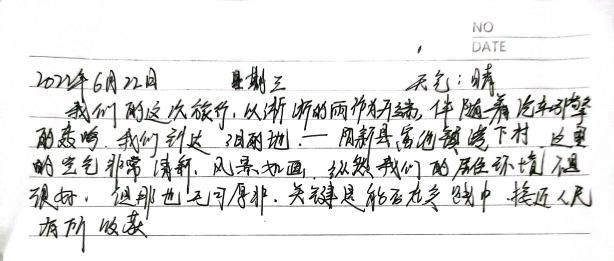 NO
DATE
2022年6月22日 星期三 天气：晴
我们的这次旅行，以淅淅的雨作为开端，伴随着汽车引擎
的轰鸣，我们到达目的地，一阳新县富池镇港下村 这里
的空气非常清新，风景如画，纵然我们的居住环境不是
很好，但那也无可厚非，关键是能否在实践中，接近人民
有所收获